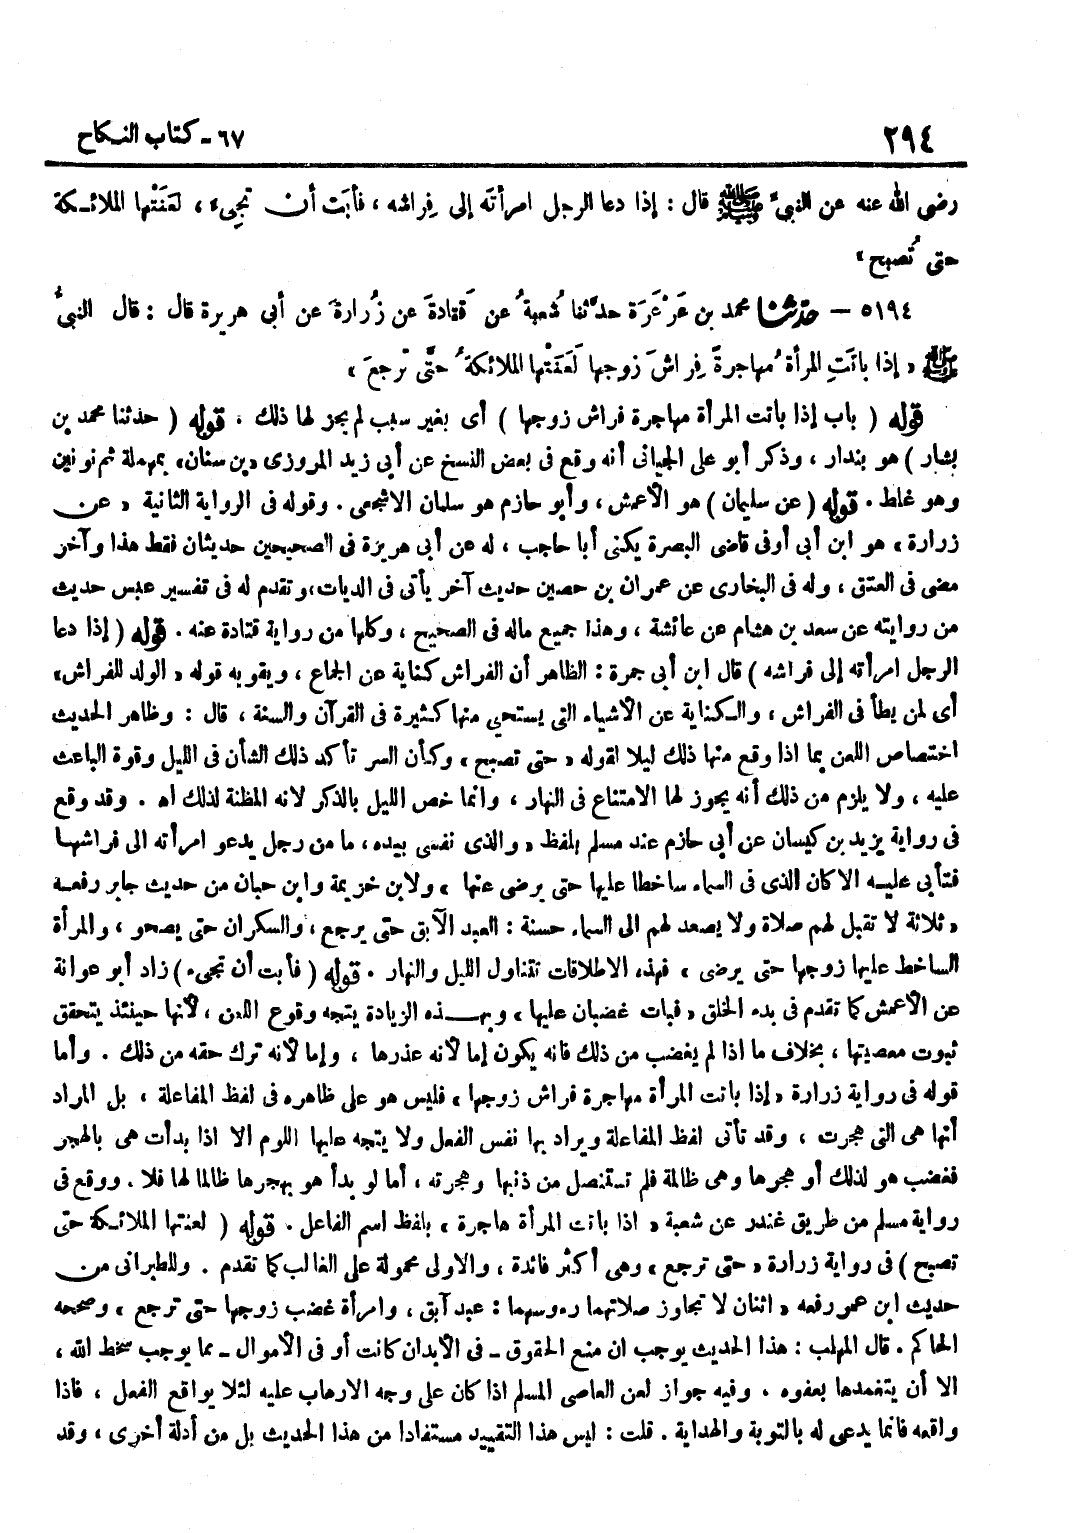 ٢٩٤
٦٧ - كتاب النكاح
رضى الله عنه عن النبىِّ ﷺ قال : إذا دعا الرجل امرأتَه إلى فِراشه ، فأبَت أن تجىء ، لعَنَتْها الملائكة
حتى تُصبح »
٥١٩٤ - حدثنا محمد بن عَرْعَرَة حدَّثنا شُعبةُ عن قتادةَ عن زُرارةَ عن أبى هريرة قال : قال النبىُّ
ﷺ « إذا باتَتِ المرأةُ مُهاجرةً فِراشَ زوجها لَعَنَتْها الملائكةُ حتَّى تَرجعَ »
قوله ( باب إذا باتت المرأة مهاجرة فراش زوجها ) أى بغير سبب لم يجز لها ذلك . قوله ( حدثنا محمد بن
بشار ) هو بندار ، وذكر أبو على الجيانى أنه وقع فى بعض النسخ عن أبى زيد المروزى «بن سنان» بمهملة ثم نونين
وهو غلط . قوله ( عن سليمان ) هو الأعمش ، وأبو حازم هو سلمان الاشجعى . وقوله فى الرواية الثانية « عن
زرارة » هو ابن أبى أوفى قاضى البصرة يكنى أبا حاجب ، له عن أبى هريرة فى الصحيحين حديثان فقط هذا وآخر
مضى فى العتق ، وله فى البخارى عن عمران بن حصين حديث آخر يأتى فى الديات ، وتقدم له فى تفسير عبس حديث
من روايته عن سعد بن هشام عن عائشة ، وهذا جميع ماله فى الصحيح ، وكلها من رواية قتادة عنه . قوله ( إذا دعا
الرجل امرأته إلى فراشه ) قال ابن أبى جمرة : الظاهر أن الفراش كناية عن الجماع ، ويقويه قوله « الولد للفراش»
أى لمن يطأ فى الفراش ، والكناية عن الأشياء التى يستحي منها كثيرة فى القرآن والسنة ، قال : وظاهر الحديث
اختصاص اللعن بما اذا وقع منها ذلك ليلا لقوله « حتى تصبح » وكأن السر تأكد ذلك الشأن فى الليل وقوة الباعث
عليه ، ولا يلزم من ذلك أنه يجوز لها الامتناع فى النهار ، وانما خص الليل بالذكر لانه المظنة لذلك اه . وقد وقع
فى رواية يزيد بن كيسان عن أبى حازم عند مسلم بلفظ « والذى نفسى بيده ، ما من رجل يدعو امرأته الى فراشها
فتأبى عليه الا كان الذى فى السماء ساخطا عليها حتى يرضى عنها » ولابن خزيمة وابن حبان من حديث جابر رفعه
« ثلاثة لا تقبل لهم صلاة ولا يصعد لهم الى السماء حسنة : العبد الآبق حتى يرجع ، والسكران حتى يصحو ، والمرأة
الساخط عليها زوجها حتى يرضى » فهذه الاطلاقات تتناول الليل والنهار . قوله ( فأبت أن تجىء ) زاد أبو عوانة
عن الأعمش كما تقدم فى بدء الخلق « فبات غضبان عليها » وبهذه الزيادة يتجه وقوع اللعن ، لأنها حينئذ يتحقق
ثبوت معصيتها ، بخلاف ما اذا لم يغضب من ذلك فانه يكون إما لأنه عذرها ، وإما لأنه ترك حقه من ذلك . وأما
قوله فى رواية زرارة « إذا باتت المرأة مهاجرة فراش زوجها » فليس هو على ظاهره فى لفظ المفاعلة ، بل المراد
أنها هى التى هجرت ، وقد تأتى لفظ المفاعلة ويراد بها نفس الفعل ولا يتجه عليها اللوم الا اذا بدأت هى بالهجر
فغضب هو لذلك أو هجرها وهى ظالمة فلم تستنصل من ذنبها وهجرته ، أما لو بدأ هو بهجرها ظالما لها فلا . ووقع فى
رواية مسلم من طريق غندر عن شعبة « اذا باتت المرأة هاجرة » بلفظ اسم الفاعل . قوله ( لعنتها الملائكة حتى
تصبح ) فى رواية زرارة « حتى ترجع » وهى أكثر فائدة ، والاولى محمولة على الغالب كما تقدم . وللطبرانى من
حديث ابن عمر رفعه « اثنان لا تجاوز صلاتهما رءوسهما : عبد آبق ، وامرأة غضب زوجها حتى ترجع » وصححه
الحاكم . قال المهلب : هذا الحديث يوجب ان منع الحقوق - فى الأبدان كانت أو فى الأموال - مما يوجب سخط الله ،
الا أن يتغمدها بعفوه . وفيه جواز لعن العاصى المسلم اذا كان على وجه الارهاب عليه لئلا يواقع الفعل ، فاذا
واقعه فانما يدعى له بالتوبة والهداية . قلت : ليس هذا التقييد مستفادا من هذا الحديث بل من أدلة أخرى ، وقد